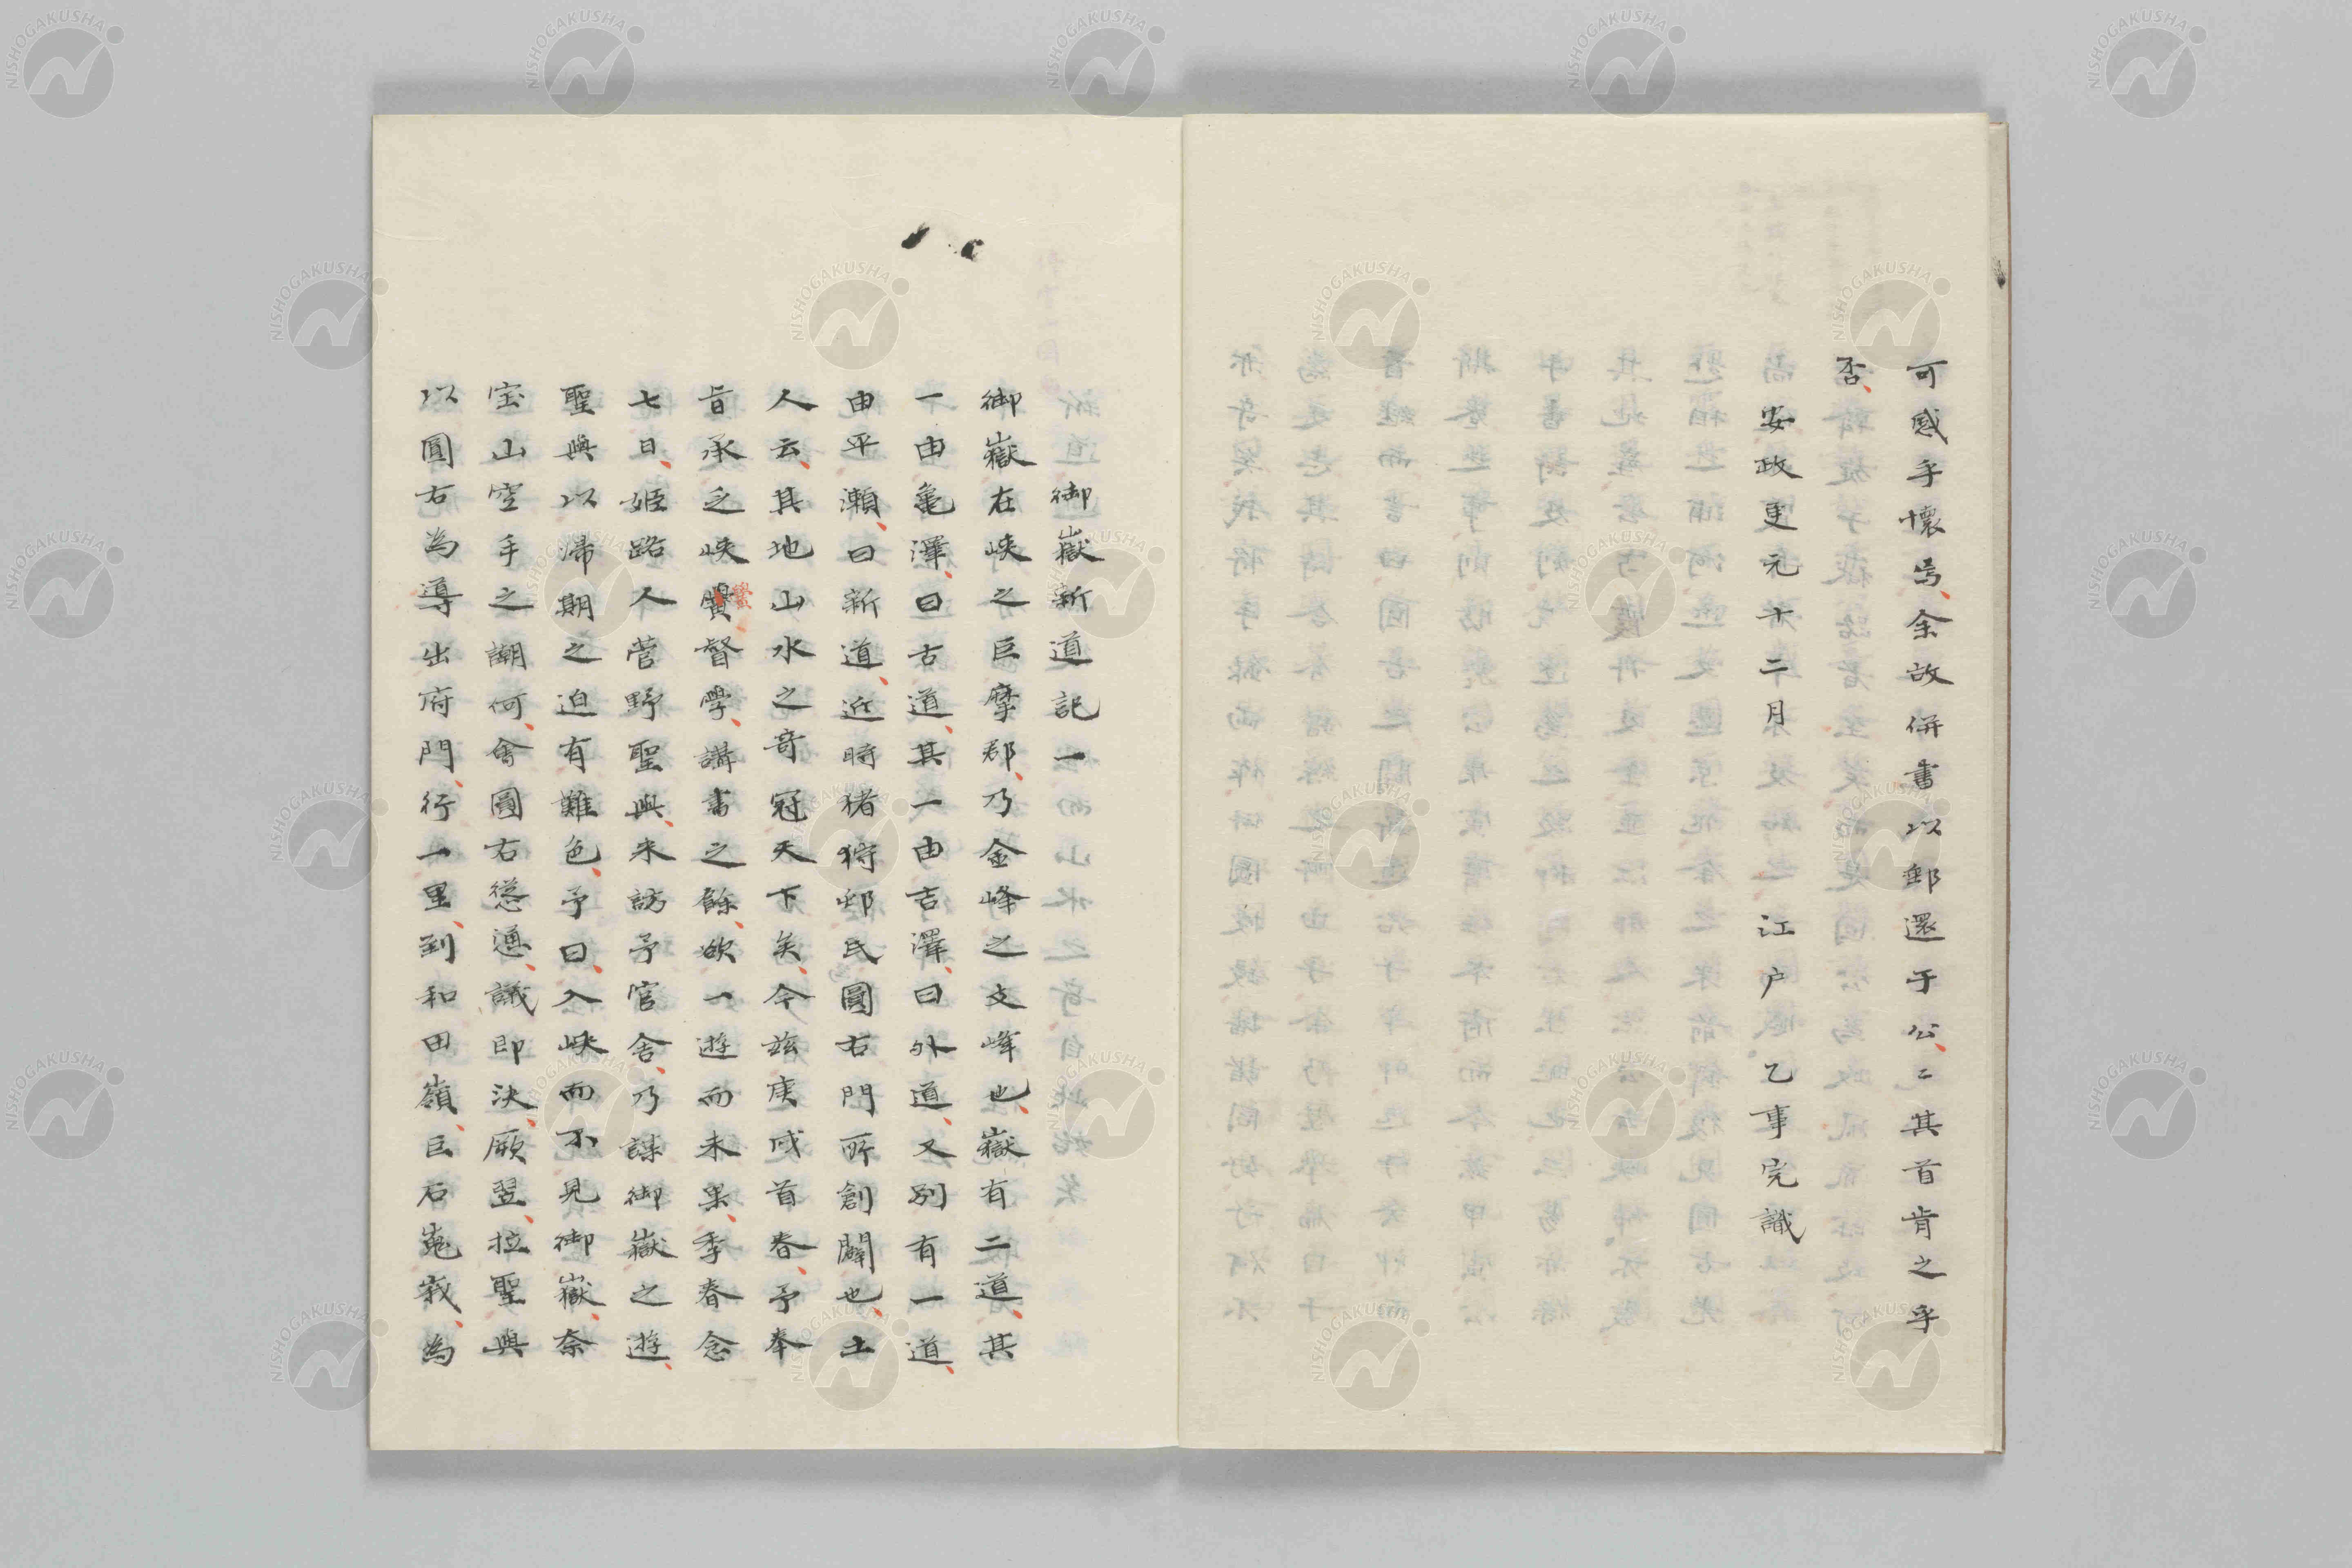 可感乎懷焉余故併書以郵還于公〻其首肯之乎
否
安政更元十二月　江戸　乙事完識
御嶽新道記一
御嶽在峡之巨摩郡乃金峰之支峰也嶽有二道其
一由亀澤曰古道其一由吉澤曰外道又別有一道
由平瀬曰新道近時猪狩邨民圓右門所創闢也土
人云其地山水之奇冠天下矣今玆庚戌首春予奉
旨承乏峡黌督學講書之餘欲一遊而未果季春念
七日姫路人菅野聖與来訪予官舎乃謀御嶽之遊
聖與以歸期之迫有難色予曰入峡而不見御嶽奈
宝山空手之謝何會圓右慫慂議即決厥翌拉聖與
以圓右為導出府門行一里到和田嶺巨石嵬峩為
NISHOGAKUSHA